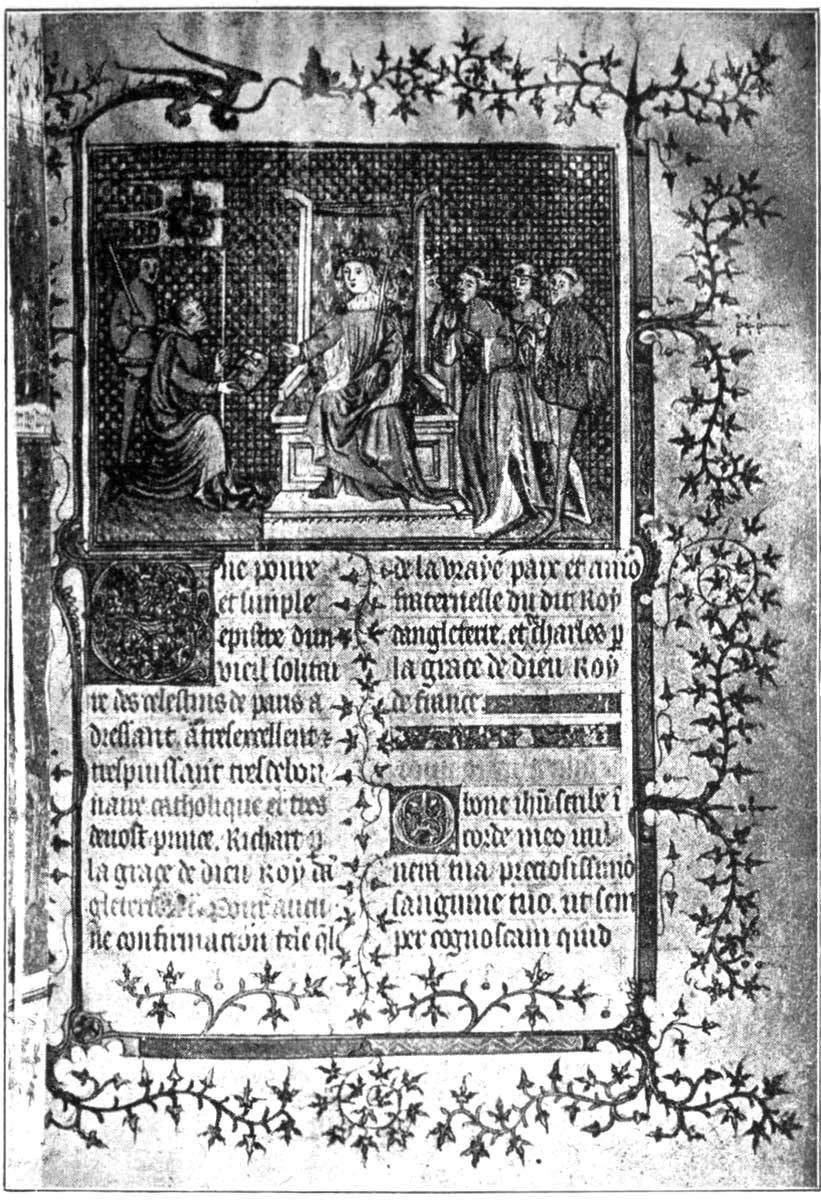 ne poure
et simple
epistre dun
vieil solitai
re des celestins de paris a
dressant. a tresexcellent ⁊
trespuissant tres debon
naire catholique et tres
devost prince. Richart p
la grace de dieu Roy dā
gleterre Pour aucu
ne confirmacion tele ql̄
de la vraye paix et amo
fraternelle du dit Roy
dangleterre. et charles p
la grace de dieu Roy
de france
O bone ihū scribe ī
corde meo vul
nera tua. preciosissimo
sanguine tuo. ut sem
per cognoscam quid